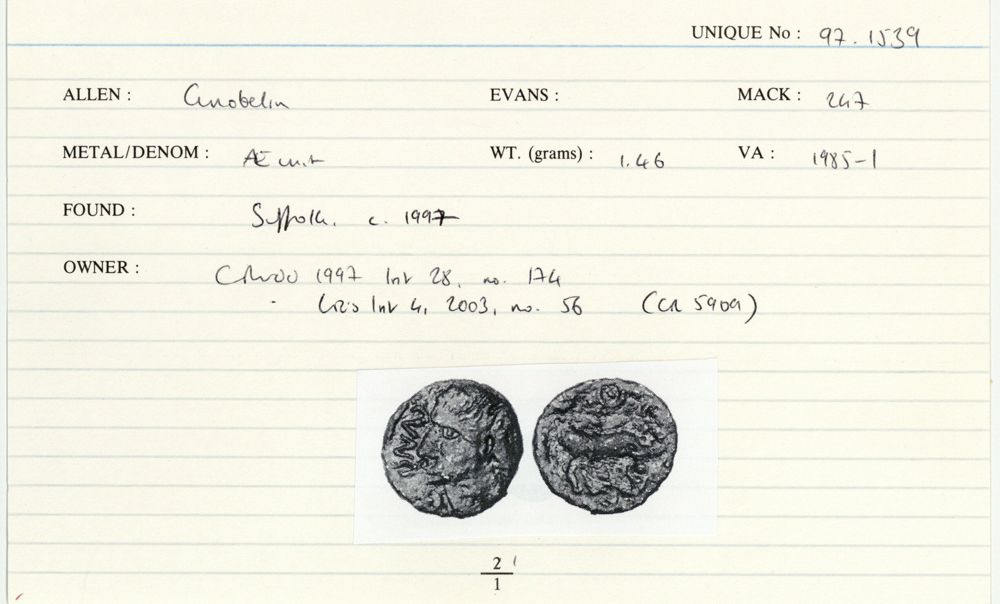 UNIQUE No : 97.1539
ALLEN : Cunobelin EVANS : MACK : 247
METAL/DENOM : Æ unit WT. (grams) : 1.46 VA : 1985-1
FOUND : Suffolk. c. 1997
OWNER : 1997 28, no. 174
4, 2003, no. 56 (CR 5909)
2
1